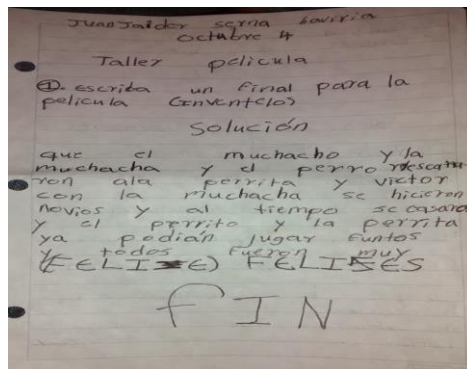 Juan Jaider serna baviria
octubre 4
Taller pelicula
①. escriba un final para la
pelicula (inventelo)
solución
que el muchacho y la
muchacha y el perro rescata
ron ala perrita y victor
con la muchacha se hicieron
novios y al tiempo se casara
y el perrito y la perrita
ya podian jugar juntos
y todos fueron muy
(FELIXE) FELISES
FIN